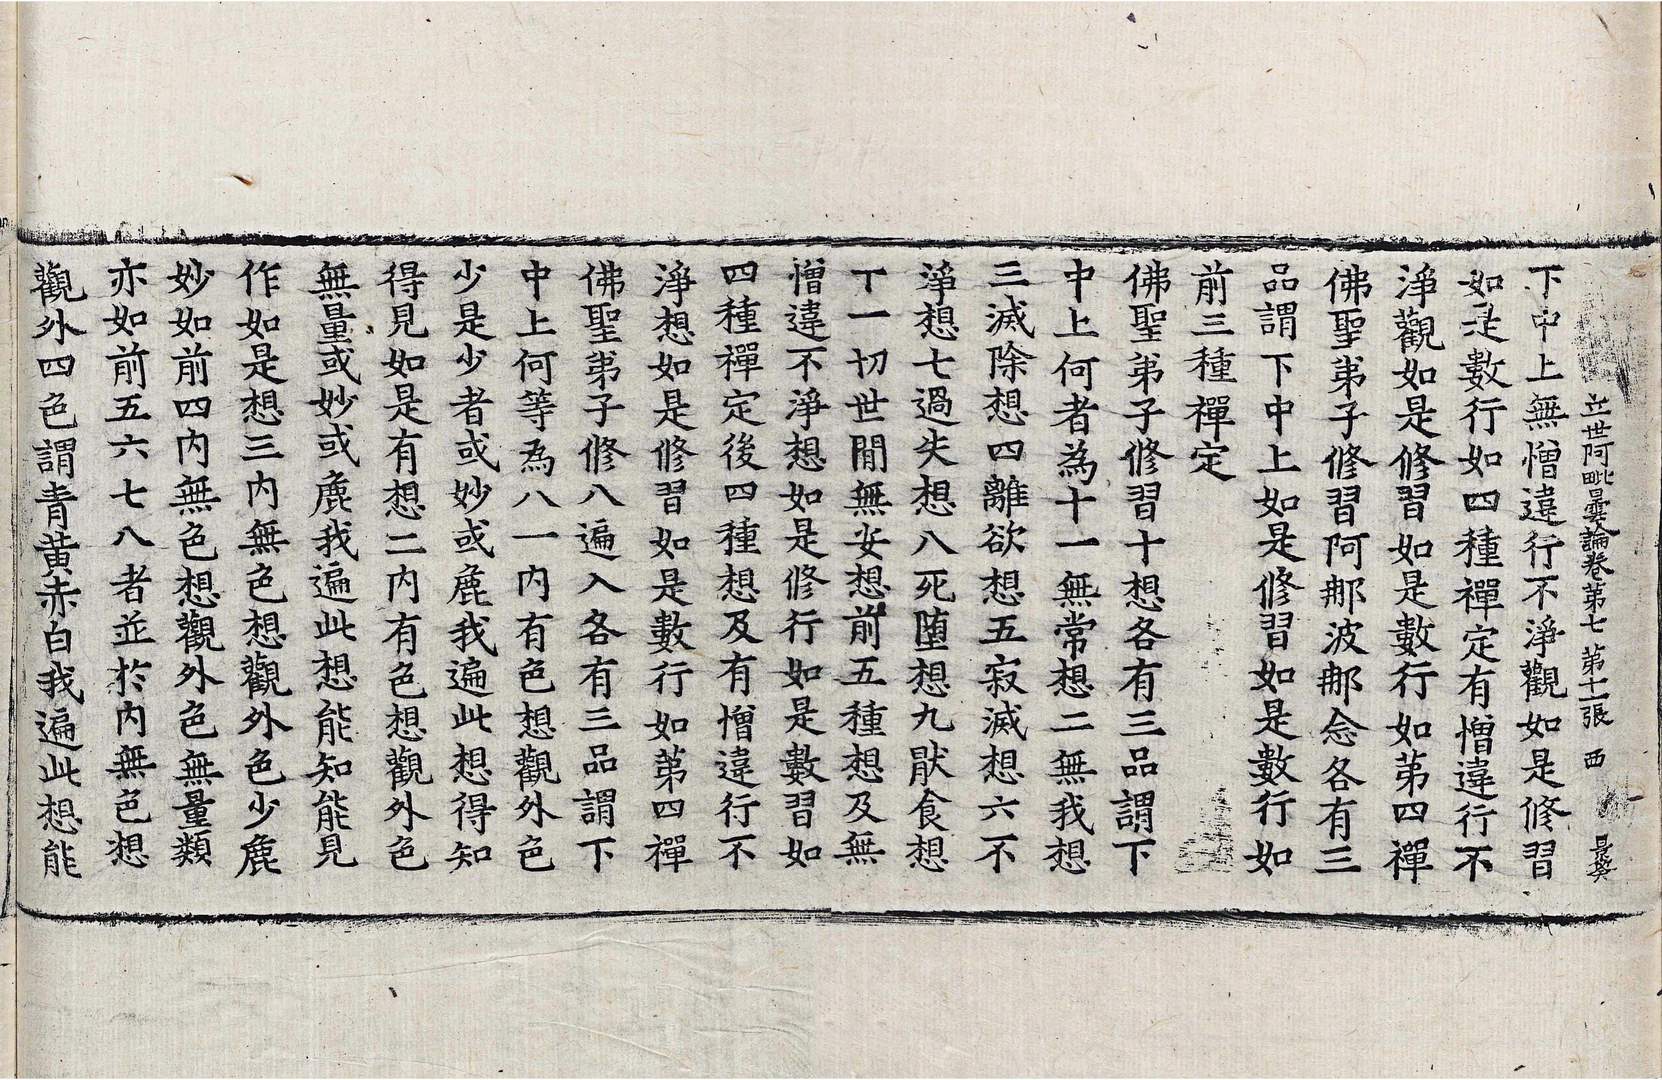 立世阿毗曇論卷第七 第十一張 西
下中上無憎違行不淨觀如是修習
如是數行如四種禪定有憎違行不
淨觀如是修習如是數行如第四禪
佛聖弟子修習阿那波那念各有三
品謂下中上如是修習如是數行如
前三種禪定
佛聖弟子修習十想各有三品謂下
中上何者為十一無常想二無我想
三滅除想四離欲想五寂滅想六不
淨想七過失想八死墮想九猒食想
十一切世間無安想前五種想及無
憎違不淨想如是修行如是數習如
四種禪定後四種想及有憎違行不
淨想如是修習如是數行如第四禪
佛聖弟子修八遍入各有三品謂下
中上何等為八一內有色想觀外色
少是少者或妙或麁我遍此想得知
得見如是有想二內有色想觀外色
無量或妙或麁我遍此想能知能見
作如是想三內無色想觀外色少麁
妙如前四內無色想觀外色無量類
亦如前五六七八者並於內無色想
觀外四色謂青黃赤白我遍此想能